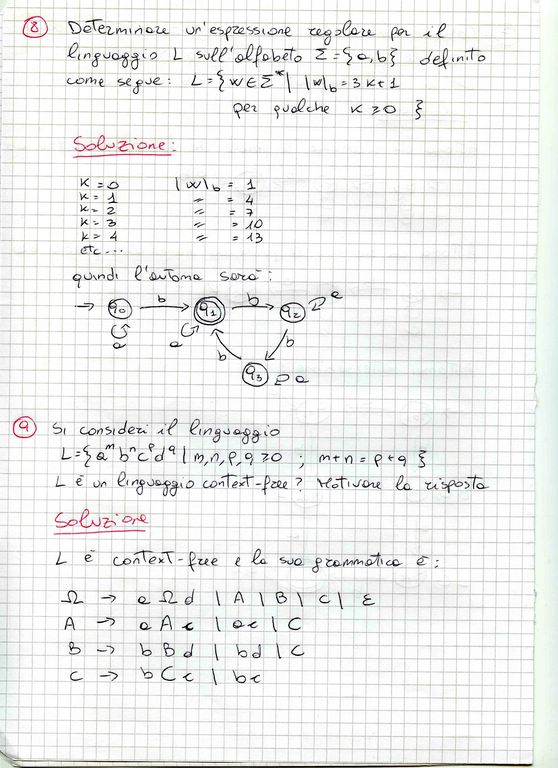 8 Determinare un'espressione regolare per il
linguaggio L sull'alfabeto Σ={a,b} definito
come segue: L={w∈Σ*| |w|b=3k+1
per qualche k≥0 }
Soluzione:
k=0 |w|b = 1
k=1 〃 = 4
k=2 〃 = 7
k=3 〃 = 10
k=4 〃 = 13
etc...
quindi l'automa sarà:
→ q0 b q1 b q2 a
a a b b
q3 a
9 Si consideri il linguaggio
L={a^m b^n c^p d^q | m,n,p,q ≥0 ; m+n=p+q }
L è un linguaggio context-free? Motivare la risposta
Soluzione
L è context-free e la sua grammatica è:
Ω → a Ω d | A | B | C | ε
A → a A c | ac | C
B → b B d | bd | C
C → b C c | bc